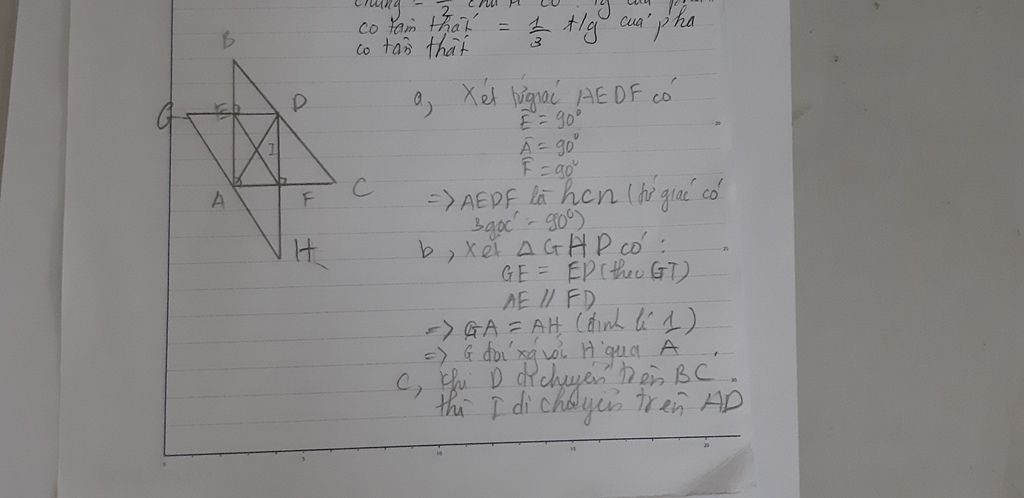 co tam thất = 1/3 t/g cuả pha
co tâm thất
B
G E D
I
A F C
H
a, Xét tứ giác AEDF có
Ê = 90°
Â = 90°
F̂ = 90°
=> AEDF là hcn (tứ giác có
3 góc = 90°)
b, Xét Δ GHD có :
GE = ED (theo GT)
AE // FD
=> GA = AH (định lí 1)
=> G đối xg với H qua A
c, Khi D di chuyển trên BC
thì I di chuyển trên AD